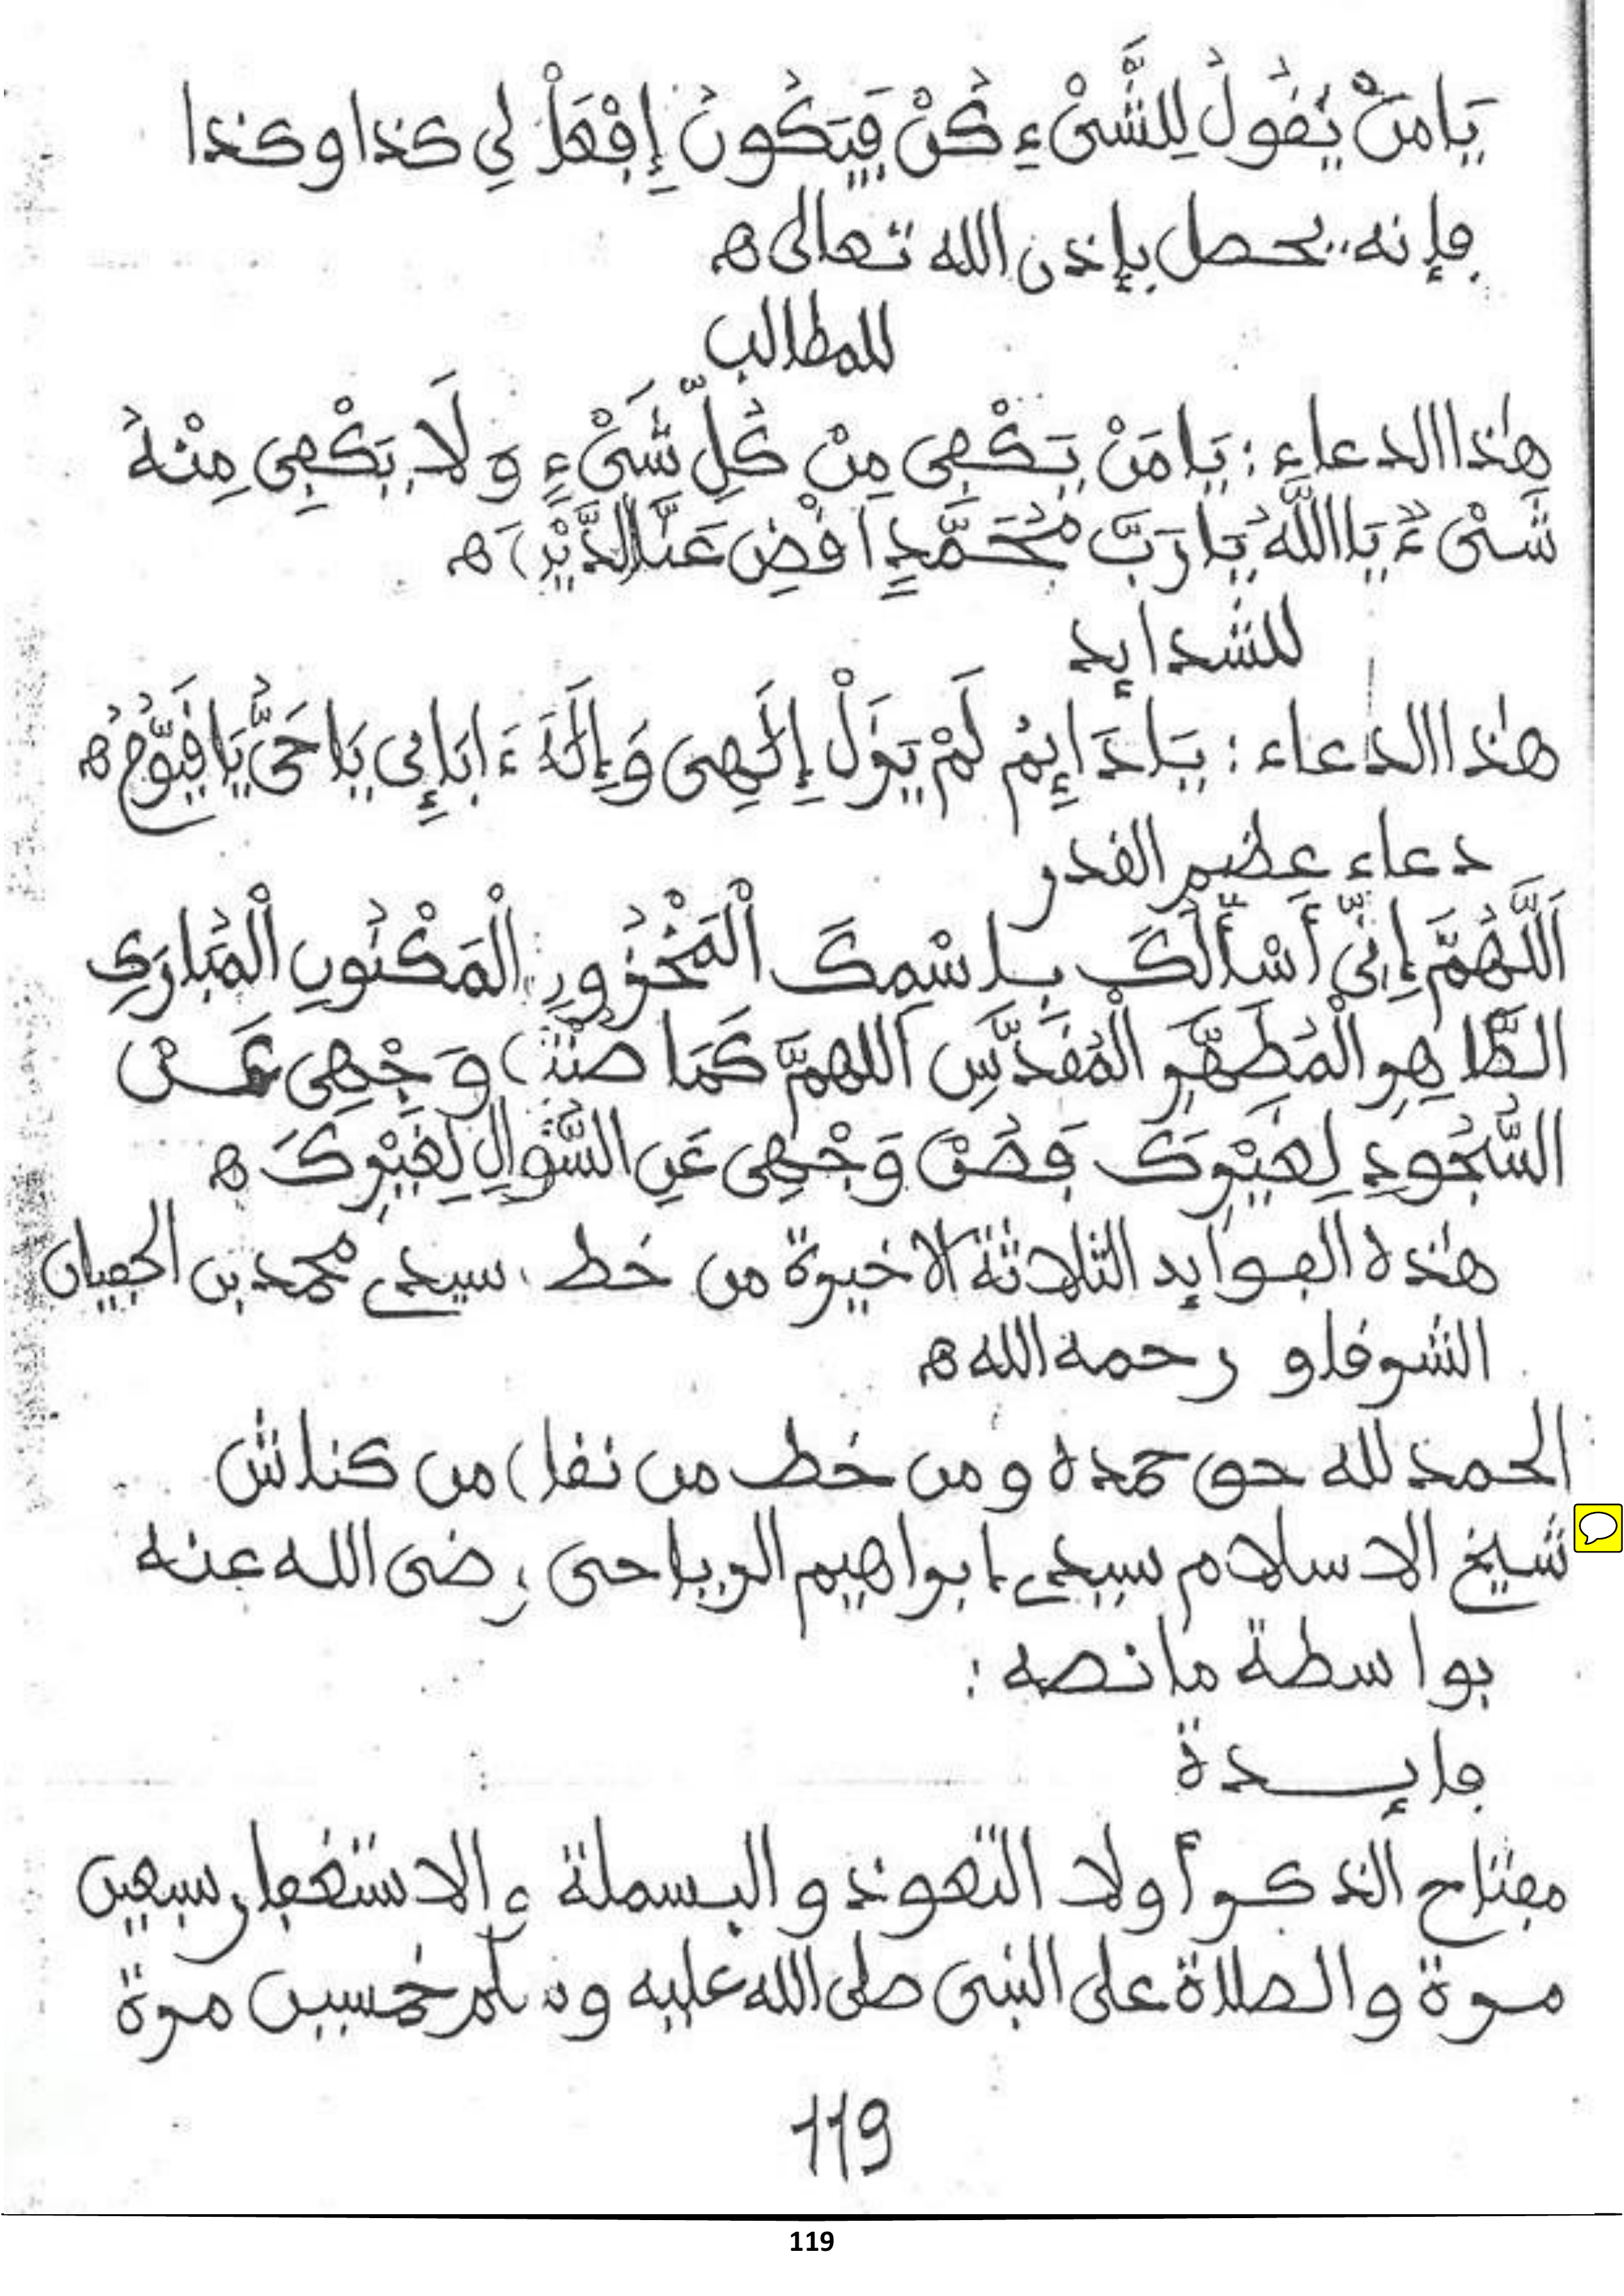 يَا مَنْ يَقُولُ لِلشَّيْءِ كُنْ فَيَكُونُ إِفْعَلْ لِي كذا وكذا
فإنه يحصل بإذن الله تعالى ه
للمطالب
هٰذا الدعاء : يَا مَنْ يَكْفِى مِنْ كُلِّ شَىْءٍ وَلَا يَكْفِى مِنْهُ
شَىْءٌ يَا اللَّهُ يَا رَبَّ مُحَمَّدٍ اَقْضِ عَنَّا الدَّيْنَ ه
للشدايد
هٰذا الدعاء : يَا دَايِمُ لَمْ يَزَلْ إِلَٰهِى وَإِلَٰهَ ءَابَاءِى يَا حَىُّ يَا قَيُّومُ ه
دعاء عظيم القدر
اَللَّهُمَّ إِنِّى أَسْأَلُكَ بِاسْمِكَ الْمَخْزُونِ الْمَكْنُونِ الْمُبَارَكِ
الطَّاهِرِ الْمُطَهَّرِ الْمُقَدَّسِ اللهمَّ كَمَا صُنْتَ وَجْهِى عَنِ
السُّجُودِ لِغَيْرِكَ فَصُنْ وَجْهِى عَنِ السُّؤَالِ لِغَيْرِكَ ه
هٰذه الفوايد الثلاثة الاخيرة من خط سيدي محمد بن الجفيان
الشرقاو رحمه الله ه
الحمد لله حق حمده ومن خط من نقل من كناش
شيخ الاسلام سيدي ابراهيم الرياحى رضى الله عنه
بواسطة ما نصه :
فايدة
مفتاح الذكر أولا التعوذ والبسملة والاستغفار سبعين
مرة والصلاة على النبى صلى الله عليه وسلم خمسين مرة
119
119